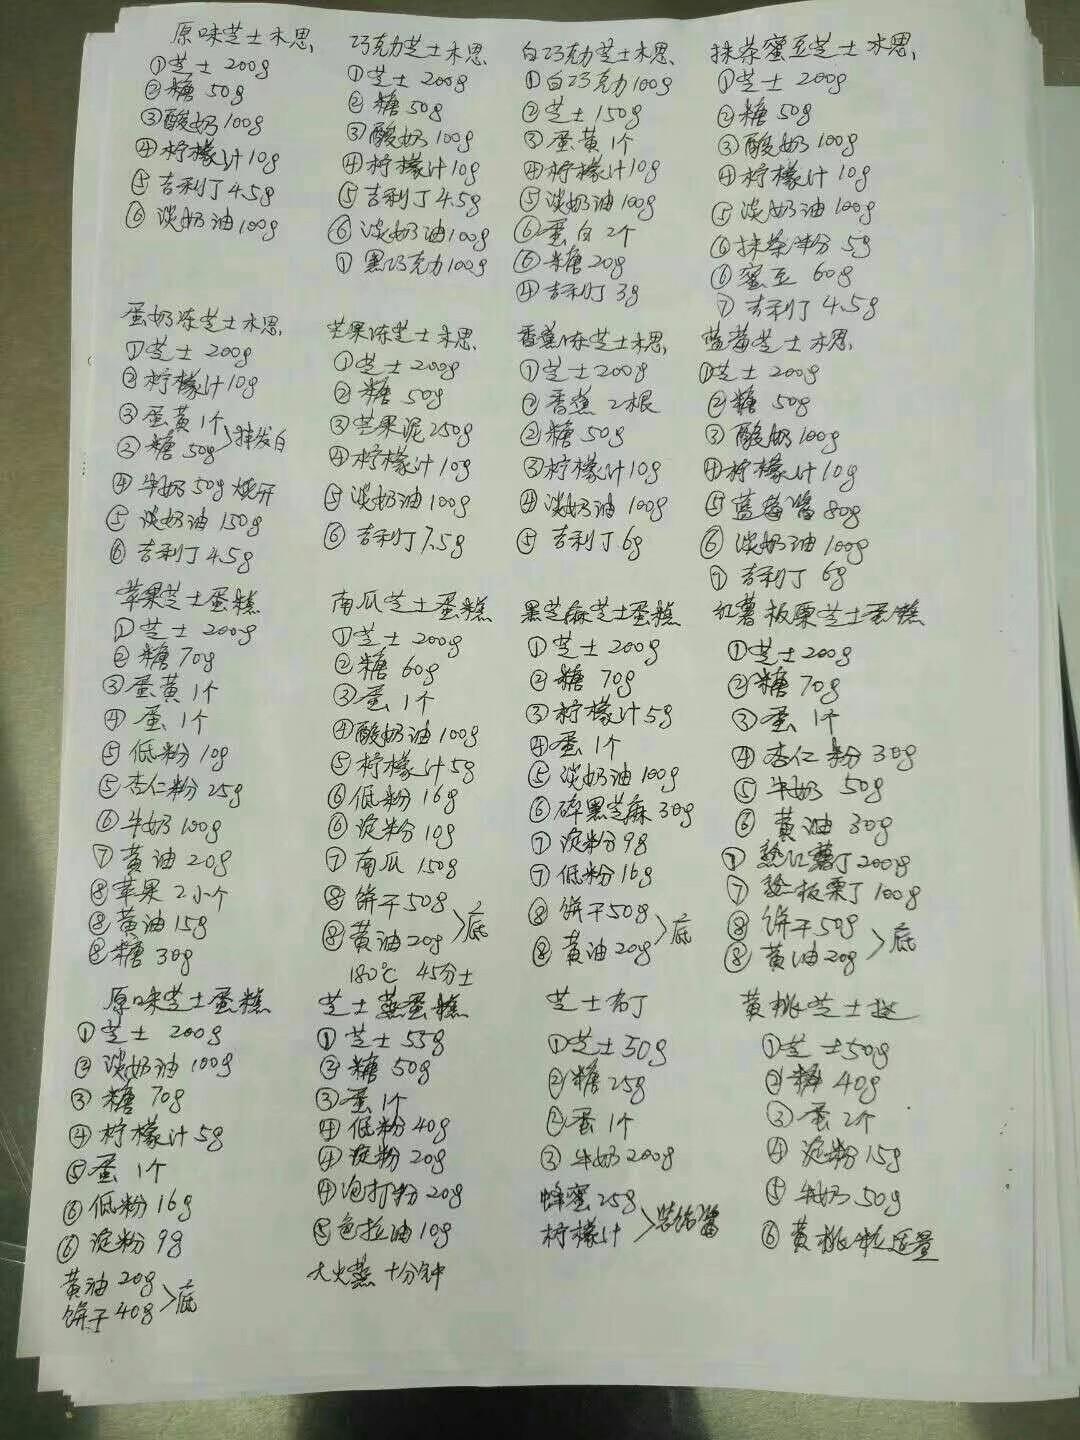 原味芝士木思
①芝士 200g
②糖 50g
③酸奶100g
④柠檬汁10g
⑤吉利丁4.5g
⑥淡奶油100g
巧克力芝士木思
①芝士 200g
②糖 50g
③酸奶100g
④柠檬汁10g
⑤吉利丁4.5g
⑥淡奶油100g
①黑巧克力100g
白巧克力芝士木思
①白巧克力100g
②芝士150g
③蛋黄1个
④柠檬汁10g
⑤淡奶油100g
⑥蛋白2个
⑥糖20g
④吉利丁3g
抹茶蜜豆芝士木思
①芝士 200g
②糖 50g
③酸奶100g
④柠檬汁10g
⑤淡奶油100g
⑥抹茶粉5g
⑥蜜豆 60g
⑦吉利丁4.5g
蛋奶冻芝士木思
①芝士 200g
②柠檬汁10g
③蛋黄1个
③糖 50g >打发白
④牛奶50g 烧开
⑤淡奶油150g
⑥吉利丁4.5g
芒果冻芝士木思
①芝士200g
②糖 50g
③芒果泥250g
④柠檬汁10g
⑤淡奶油100g
⑥吉利丁7.5g
香蕉冻芝士木思
①芝士200g
②香蕉 2根
②糖50g
③柠檬汁10g
④淡奶油100g
⑤吉利丁6g
蓝莓芝士木思
①芝士 200g
②糖 50g
③酸奶100g
④柠檬汁10g
⑤蓝莓酱80g
⑥淡奶油100g
⑦吉利丁6g
苹果芝士蛋糕
①芝士 200g
②糖70g
③蛋黄1个
④蛋 1个
⑤低粉10g
⑤杏仁粉25g
⑥牛奶100g
⑦黄油20g
⑧苹果 2小个
⑧黄油15g
⑧糖30g
南瓜芝士蛋糕
①芝士200g
②糖 60g
③蛋1个
④酸奶油100g
⑤柠檬汁5g
⑥低粉16g
⑥淀粉10g
⑦南瓜150g
⑧饼干50g
⑧黄油20g >底
180℃ 45分士
黑芝麻芝士蛋糕
①芝士200g
②糖 70g
③柠檬汁5g
④蛋1个
⑤淡奶油100g
⑥碎黑芝麻30g
⑦淀粉9g
⑦低粉16g
⑧饼干50g
⑧黄油20g >底
红薯板栗芝士蛋糕
①芝士200g
②糖70g
③蛋 1个
④杏仁粉30g
⑤牛奶 50g
⑥黄油30g
⑦熟红薯丁200g
⑦熟板栗丁100g
⑧饼干50g
⑧黄油20g >底
原味芝士蛋糕
①芝士 200g
②淡奶油100g
③糖 70g
④柠檬汁5g
⑤蛋 1个
⑥低粉16g
⑥淀粉9g
黄油20g
饼干40g >底
芝士蒸蛋糕
①芝士 55g
②糖 50g
③蛋1个
④低粉40g
④淀粉20g
④泡打粉20g
⑤色拉油10g
大火蒸十分钟
芝士布丁
①芝士50g
②糖25g
②蛋1个
③牛奶200g
蜂蜜25g
柠檬汁 >装饰酱
黄桃芝士挞
①芝士50g
②糖 40g
③蛋2个
④淀粉15g
⑤牛奶50g
⑥黄桃粒适量